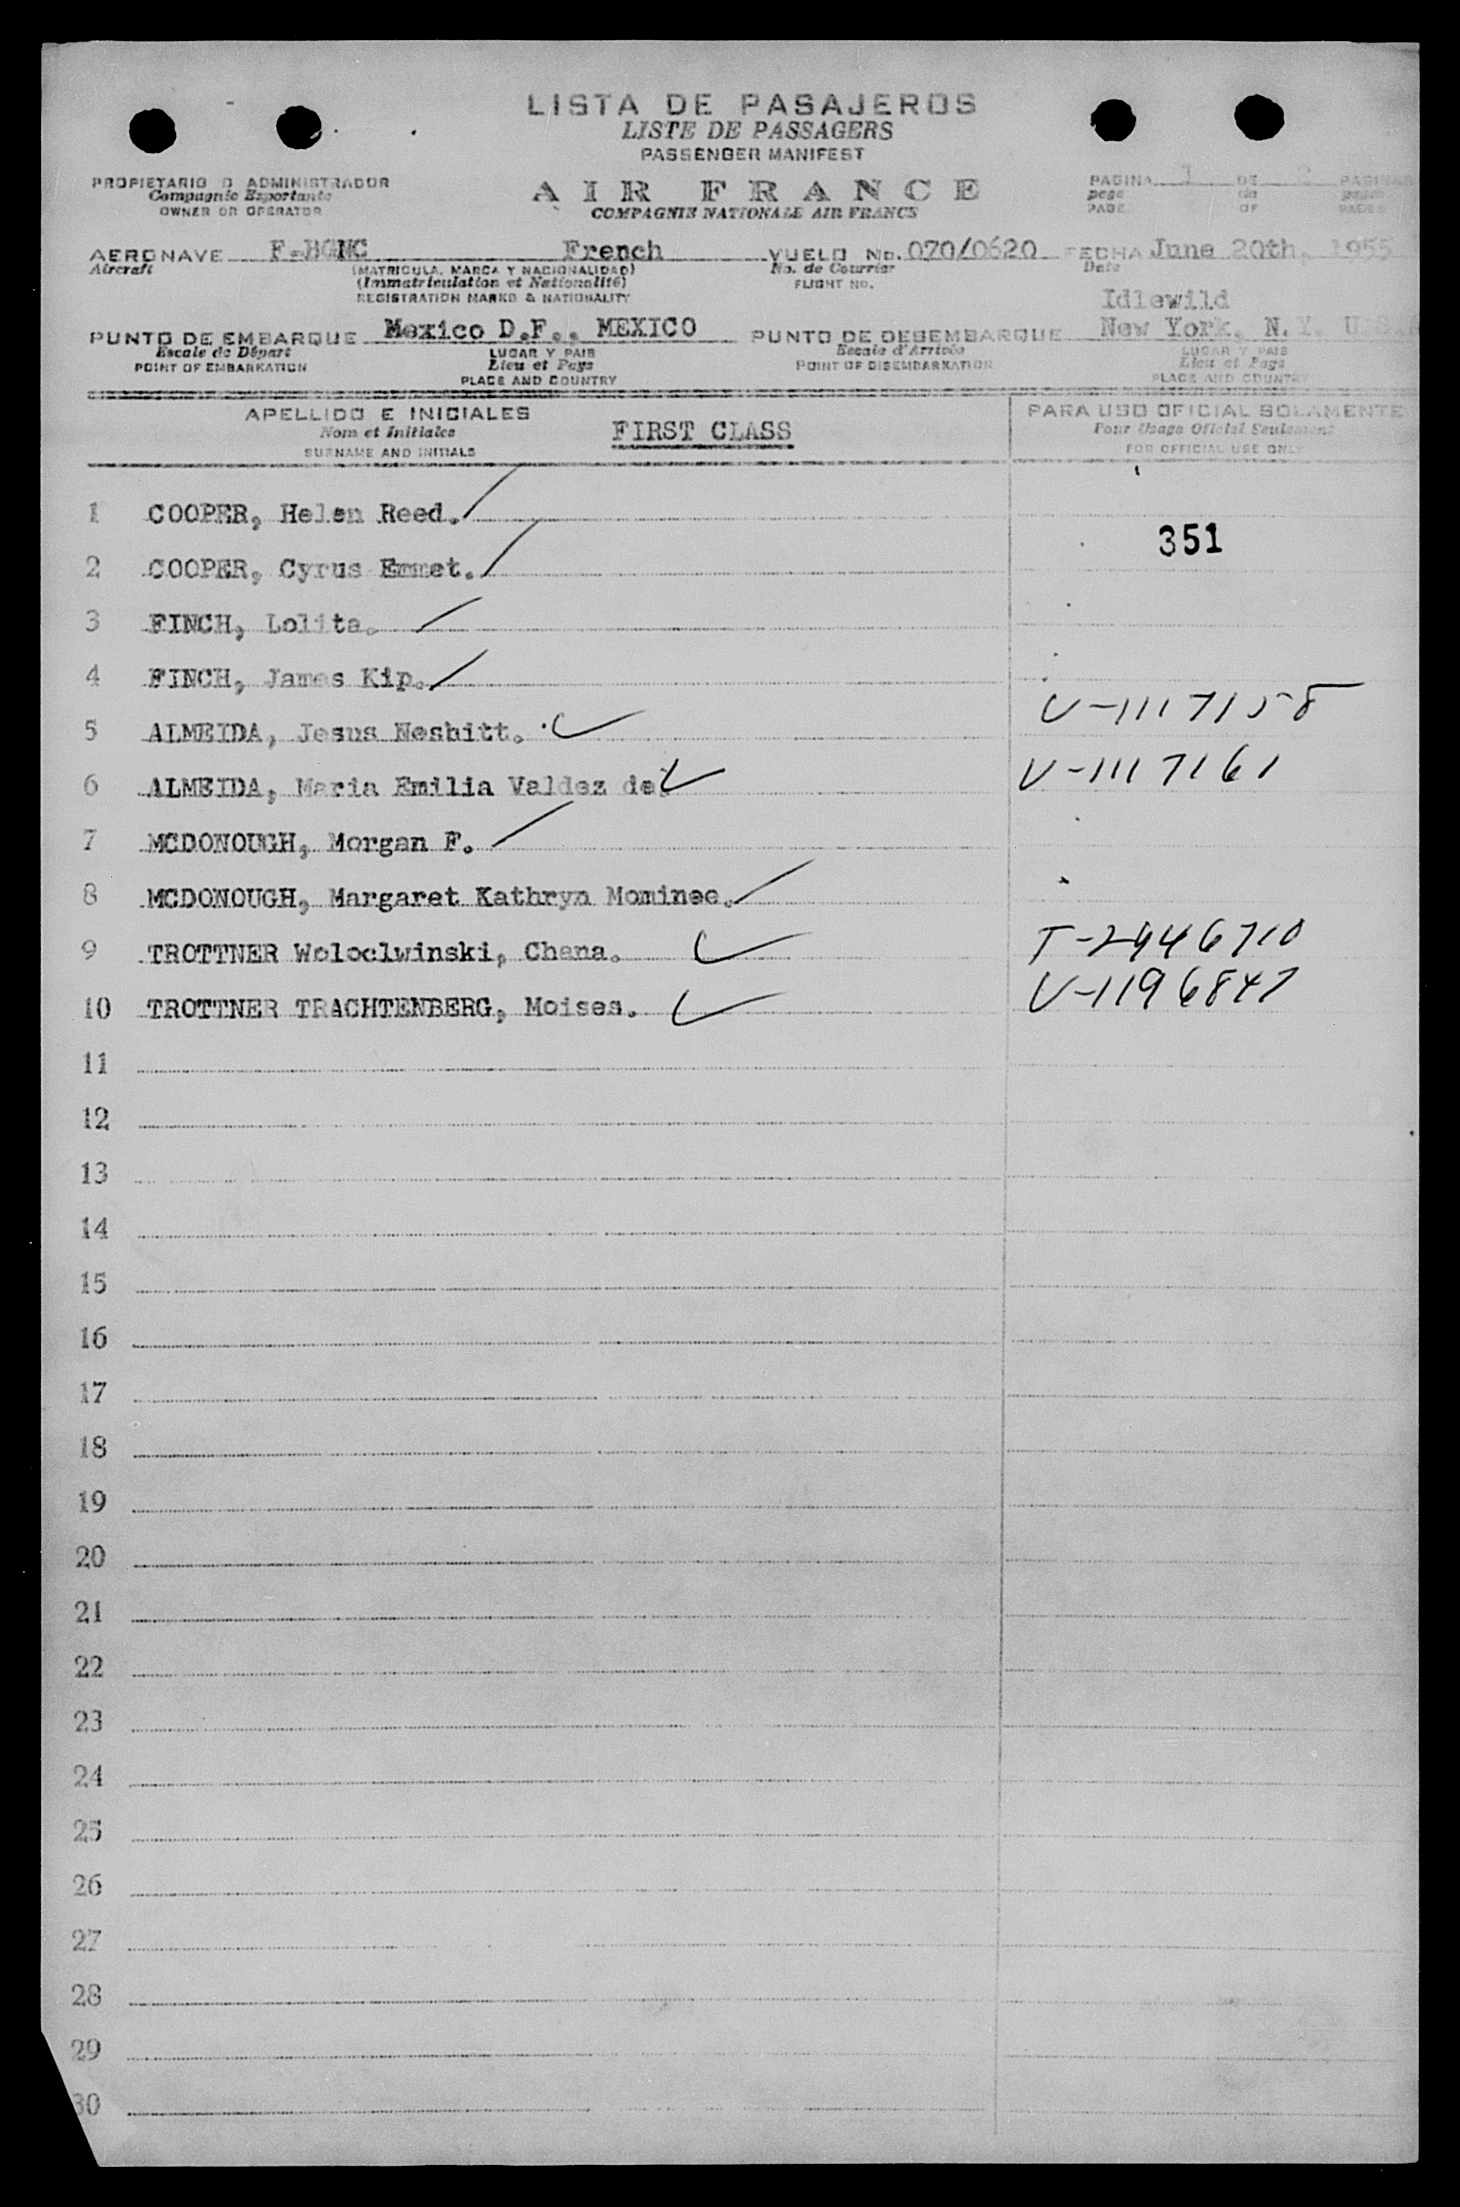 LISTA DE PASAJEROS
LISTE DE PASSAGERS
PASSENGER MANIFEST
PROPIETARIO O ADMINISTRADOR
Compagnie Exportante
OWNER OR OPERATOR
AIR FRANCE
COMPAGNIE NATIONALE AIR FRANCE
PAGINA 1 DE 2 PAGINAS
page de pages
PAGE OF PAGES
AERONAVE F-BGNC French VUELO No. 070/0620 FECHA June 20th, 1955
Aircraft (MATRICULA, MARCA Y NACIONALIDAD) No. de Courrier Date
(Immatriculation et Nationalité) FLIGHT NO.
REGISTRATION MARKS & NATIONALITY
Idlewild
PUNTO DE EMBARQUE Mexico D.F., MEXICO PUNTO DE DESEMBARQUE New York, N.Y. U.S.A
Escale de Départ LUGAR Y PAIS Escale d'Arrivée LUGAR Y PAIS
POINT OF EMBARKATION Lieu et Pays POINT OF DISEMBARKATION Lieu et Pays
PLACE AND COUNTRY PLACE AND COUNTRY
APELLIDO E INICIALES PARA USO OFICIAL SOLAMENTE
Nom et Initiales FIRST CLASS Pour Usage Officiel Seulement
SURNAME AND INITIALS FOR OFFICIAL USE ONLY
1 COOPER, Helen Reed.
351
2 COOPER, Cyrus Emmet.
3 FINCH, Lolita.
4 FINCH, James Kip.
5 ALMEIDA, Jesus Nesbitt. V-1117158
6 ALMEIDA, Maria Emilia Valdez de. V-1117161
7 MCDONOUGH, Morgan F.
8 MCDONOUGH, Margaret Kathryn Mominee.
9 TROTTNER Woloclwinski, Chana. T-2946710
10 TROTTNER TRACHTENBERG, Moises. V-1196847
11
12
13
14
15
16
17
18
19
20
21
22
23
24
25
26
27
28
29
30